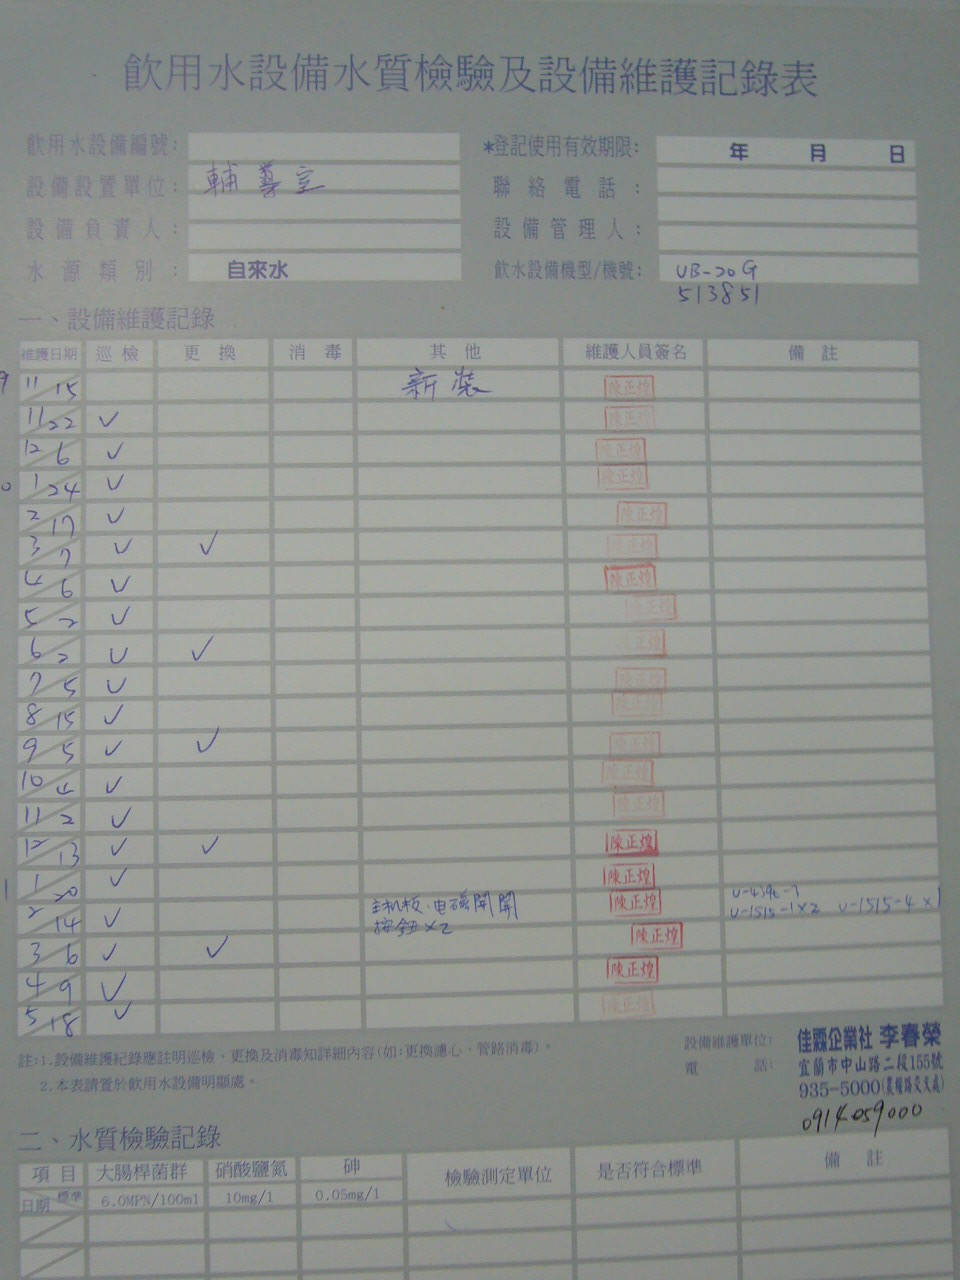 飲用水設備水質檢驗及設備維護記錄表
飲用水設備編號：
*登記使用有效期限： 年 月 日
設備設置單位： 輔導室
聯絡電話：
設備負責人：
設備管理人：
水源類別： 自來水
飲水設備機型/機號： UB-20G
513851
一、設備維護記錄
維護日期 巡檢 更換 消毒 其他 維護人員簽名 備註
9 11/15 新裝 陳正煌
11/22 ✓ 陳正煌
12/6 ✓ 陳正煌
0 1/24 ✓ 陳正煌
2/17 ✓ 陳正煌
3/7 ✓ ✓ 陳正煌
4/6 ✓ 陳正煌
5/2 ✓ 陳正煌
6/2 ✓ ✓ 陳正煌
7/5 ✓ 陳正煌
8/15 ✓ 陳正煌
9/5 ✓ ✓ 陳正煌
10/4 ✓ 陳正煌
11/2 ✓ 陳正煌
12/13 ✓ ✓ 陳正煌
1 1/20 ✓ 陳正煌
2/14 ✓ 主机板、电磁開開 陳正煌
按鈕×2 U-1515-1×2 U-1515-4×1
3/6 ✓ ✓ 陳正煌
4/9 ✓ 陳正煌
5/18 ✓ 陳正煌
註：1.設備維護紀錄應註明巡檢、更換及消毒知詳細內容(如：更換濾心、管路消毒)。
2.本表請置於飲用水設備明顯處。
設備維護單位： 佳霖企業社 李春榮
電話： 宜蘭市中山路二段155號
935-5000(農權路交叉處)
0914059000
二、水質檢驗記錄
項目 大腸桿菌群 硝酸鹽氮 砷 檢驗測定單位 是否符合標準 備註
日期 標準 6.0MPN/100ml 10mg/1 0.05mg/1